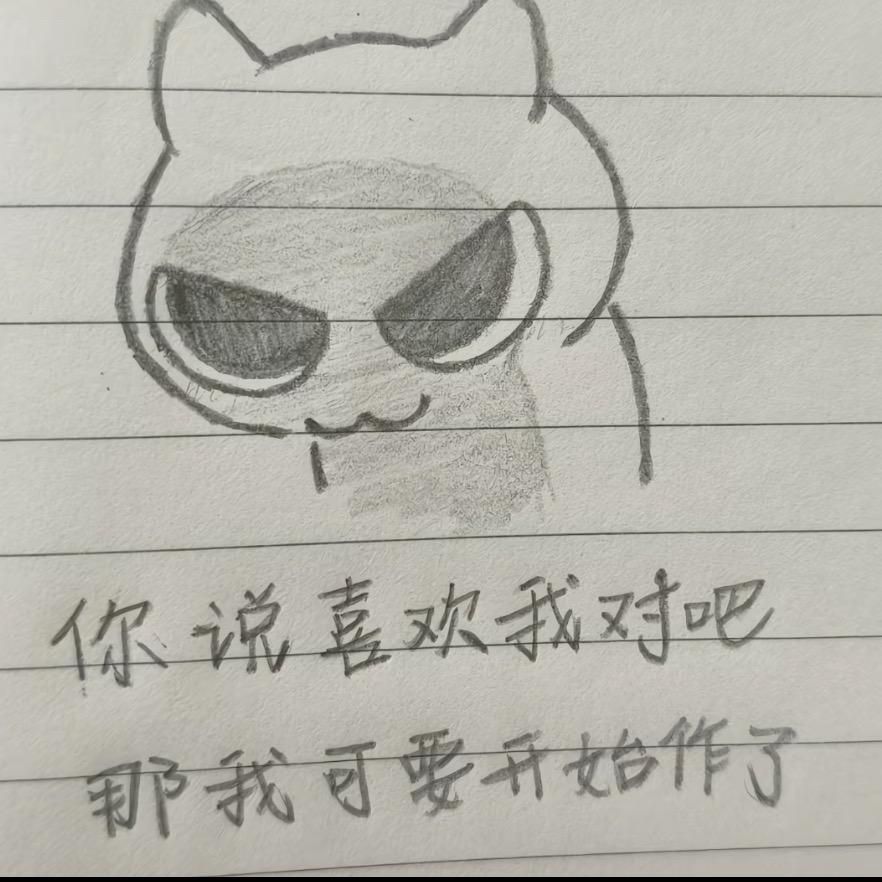 你说喜欢我对吧
那我可要开始作了